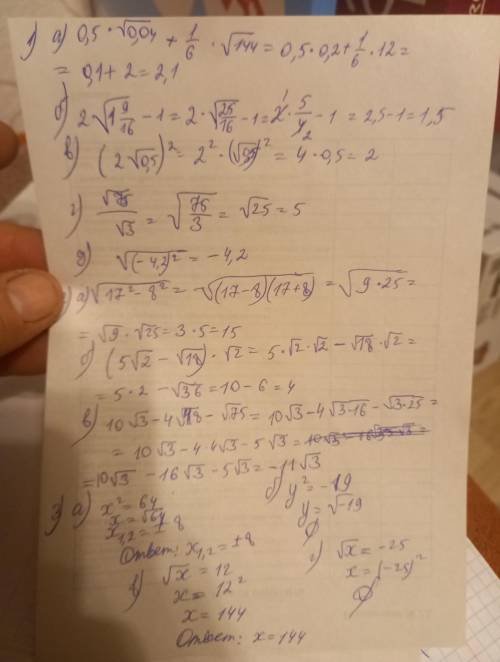 1) а) 0,5 · √0,04 + 1/6 · √144 = 0,5 · 0,2 + 1/6 · 12 =
= 0,1 + 2 = 2,1
б) 2√1 9/16 - 1 = 2 · √25/16 - 1 = 2 · 5/4 - 1 = 2,5 - 1 = 1,5
в) (2√0,5)² = 2² · (√0,5)² = 4 · 0,5 = 2
г) √75/√3 = √75/3 = √25 = 5
д) √(-4,2)² = -4,2
а) √17² - 8² = √(17-8)(17+8) = √9 · 25 =
= √9 · √25 = 3 · 5 = 15
б) (5√2 - √18) · √2 = 5 · √2 · √2 - √18 · √2 =
= 5 · 2 - √36 = 10 - 6 = 4
в) 10√3 - 4√48 - √75 = 10√3 - 4√3·16 - √3·25 =
= 10√3 - 4·4√3 - 5√3 =
= 10√3 - 16√3 - 5√3 = -11√3
3) а) x² = 64
x = √64
x₁,₂ = ± 8
Ответ: x₁,₂ = ±8
б) y² = -19
y = √-19
∅
в) √x = 12
x = 12²
x = 144
Ответ: x = 144
г) √x = -25
x = (-25)²
∅